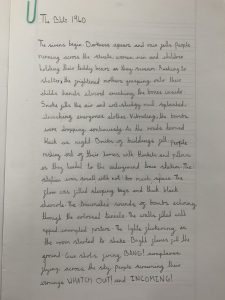 The Blitz 1940
The sirens begin. Darkness appears and over fills people
running across the streets women, men and children
holding their teddy bears as they scream. Rushing to
shelter, the frightened mothers grasping onto their
childs hands almost crushing the bones inside.
Smoke fills the air and wet sludgy mud splashed
drenching everyones clothes. Vibrating, the bombs
were dropping continuously as the roads turned
black as night. Bricks of buildings fell people
rushing out of their homes with blankets and pillows
as they headed to the underground train station. The
station was small with not too much space. The
floor was filled sleeping bags and thick black
the traumatic sounds of bombs echoing
through the coloured tunnels. The walls filled with
ripped, crumpled posters. The lights flickering as
the room started to shake. Bright flames fill the
ground. Gun shots firing, BANG! aeroplanes
flying across the sky, people screaming their
warnings WHATCH OUT! and INCOMING!